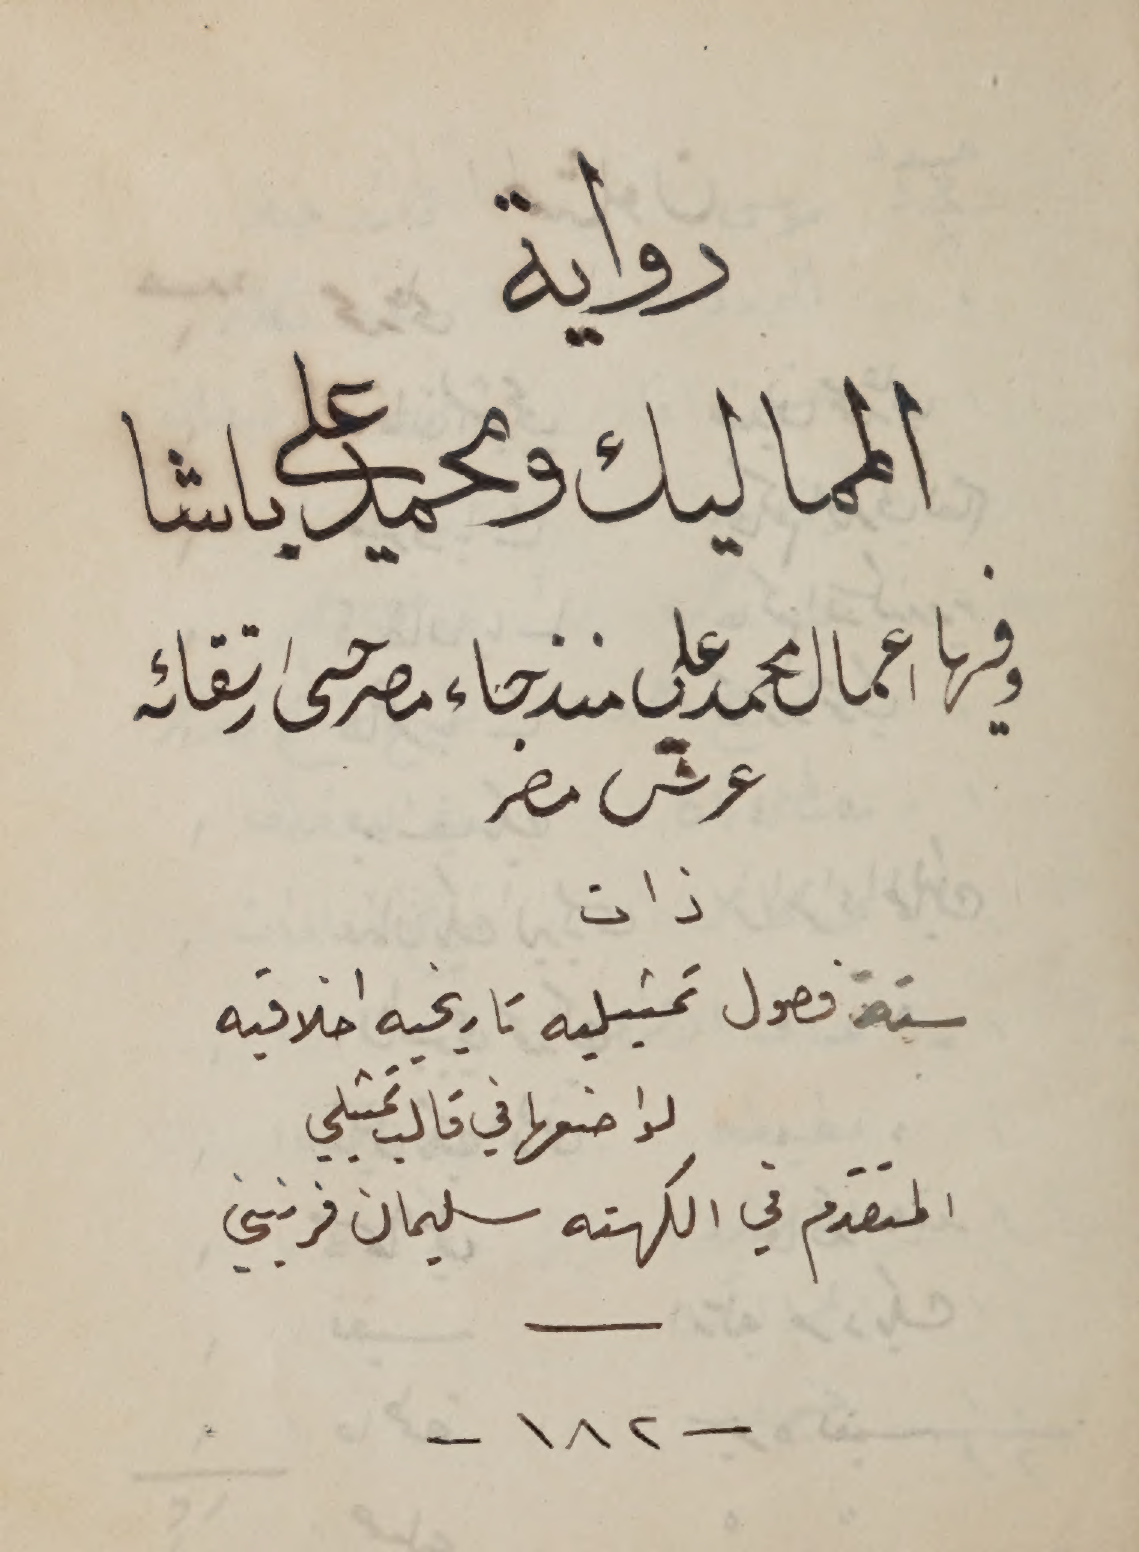 رواية
المماليك ومحمد علي باشا
وفيها اعمال محمد علي منذ جاء مصر حتى ارتقائه
عرش مصر
ذات
ستة فصول تمثيليه تاريخيه اخلاقيه
لواضعها في قالب تمثيلي
المتقدم في الكهنه سليمان فرنيني
- ١٨٢ -